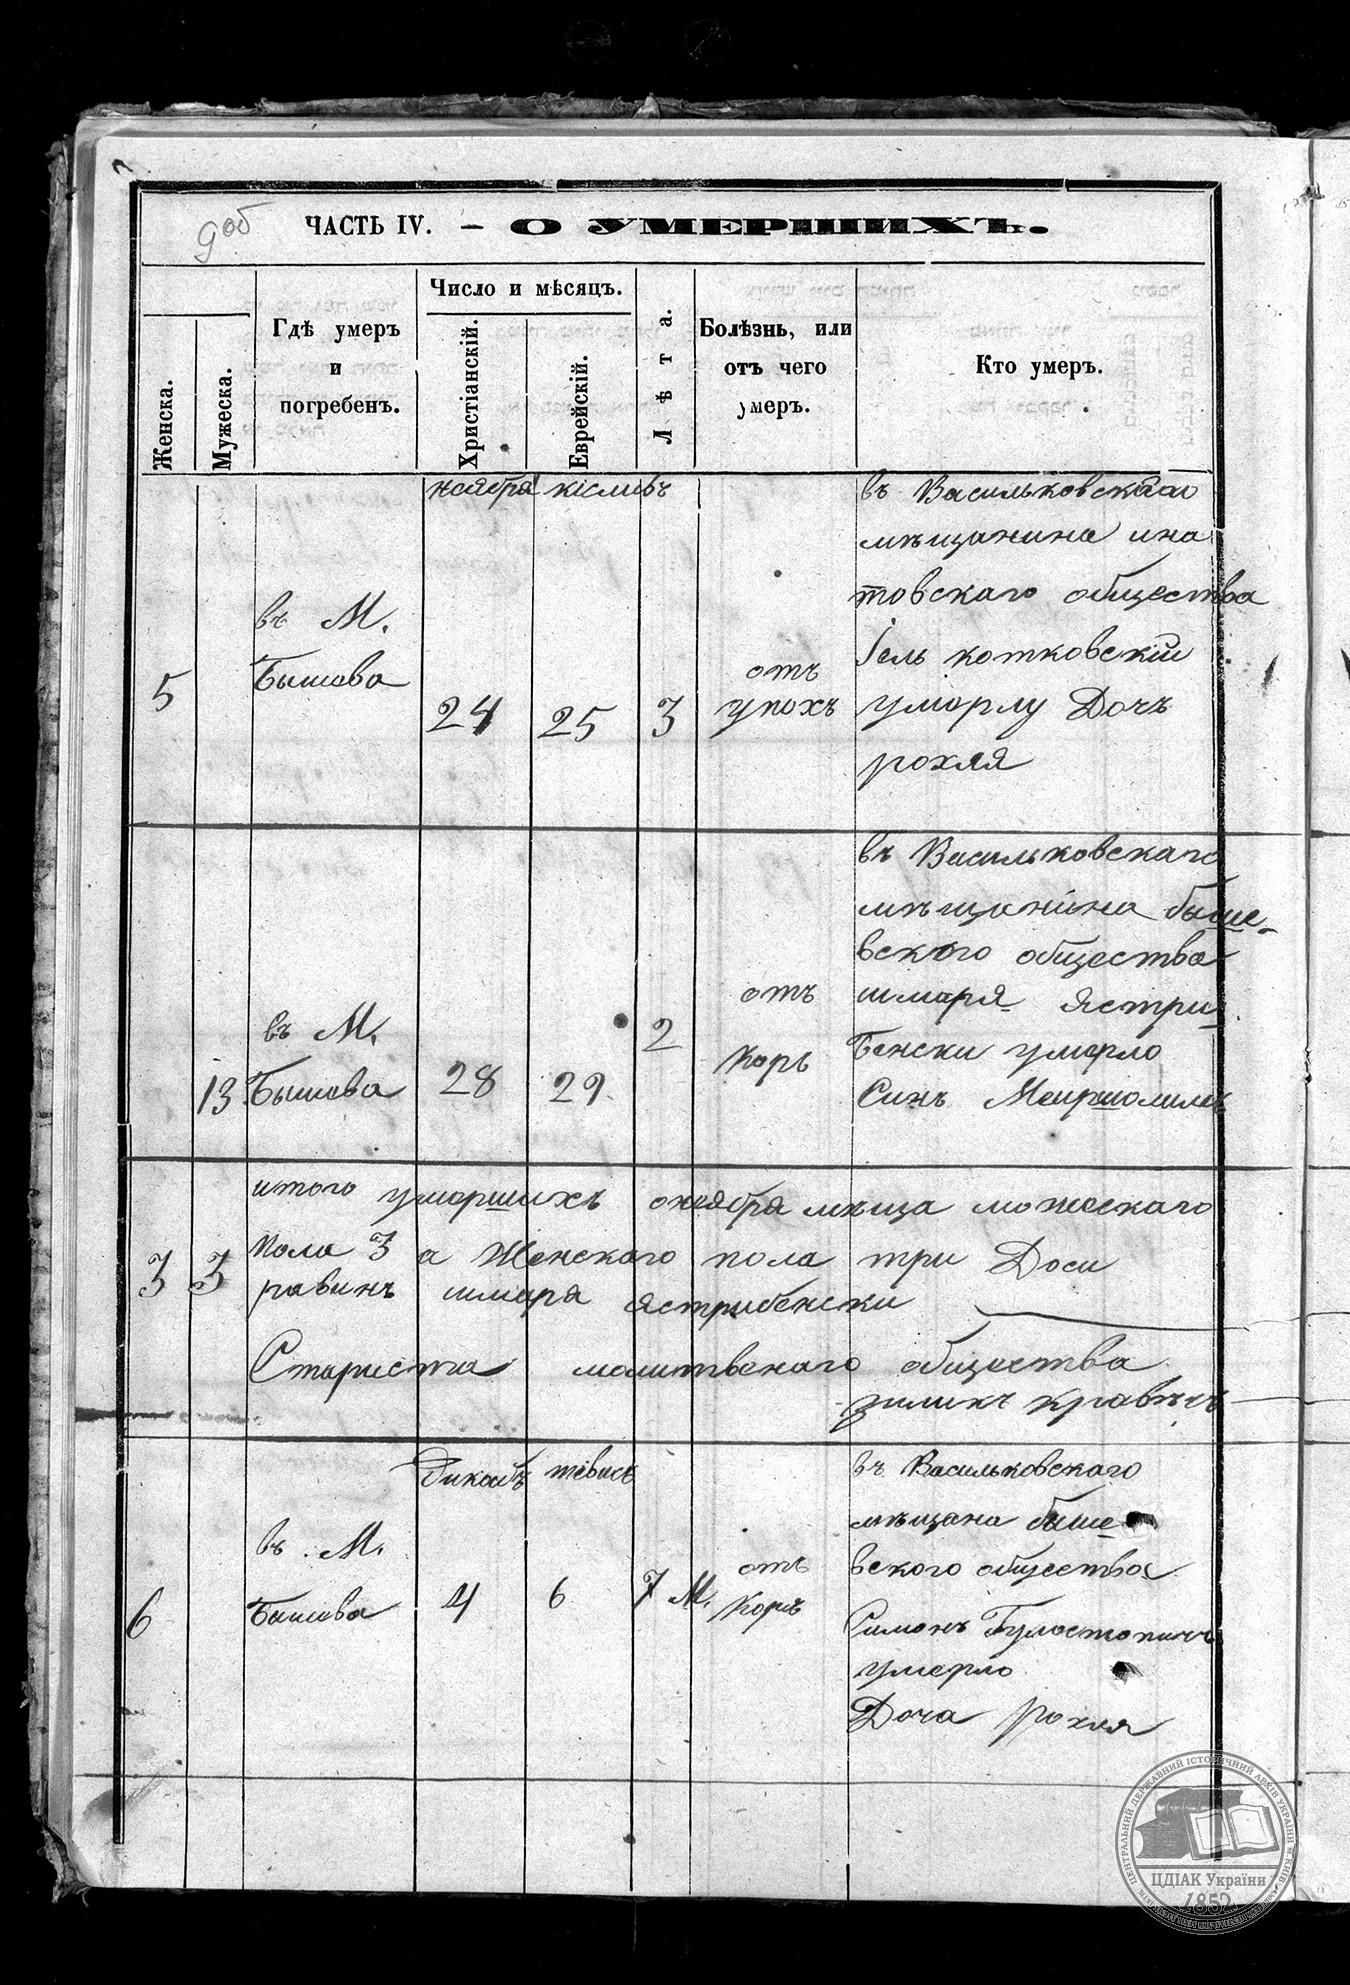 9об
ЧАСТЬ IV. — О УМЕРШИХЪ.
Женска.
Мужеска.
Гдѣ умеръ
и
погребенъ.
Число и мѣсяцъ.
Христіанскій.
Еврейскій.
Лѣта.
Болѣзнь, или
отъ чего
умеръ.
Кто умеръ.
ноября
5
въ М.
Бышова
24
25
3
отъ
въ Васильковскаго
мѣщанина ина
товскаго общества
Іель котковскій
уморлу Дочъ
рохля
13
въ М.
Бышова
28
29
2
отъ
Корь
въ Васильковскаго
мѣщаніна быше-
вского общества
шмаря Ястри
Бенски умерло
Синъ
итого умаршихъ ноября мѣща можескаго
3 3 пола 3 а Женскаго пола три Доси
равинъ шмаря Ястрибенски
Стариста молитвенаго общества
зиликъ
Дикабъ тевисъ
6
въ М.
Бышова
4
6
7 М.
отъ
Коръ
въ Васильковскаго
мѣщана быше
вского общества
Симонъ
умерло
Доча рохля
ЦЕНТРАЛЬНИЙ ДЕРЖАВНИЙ ІСТОРИЧНИЙ АРХІВ УКРАЇНИ М КИЇВ
ЦДІАК України
1852